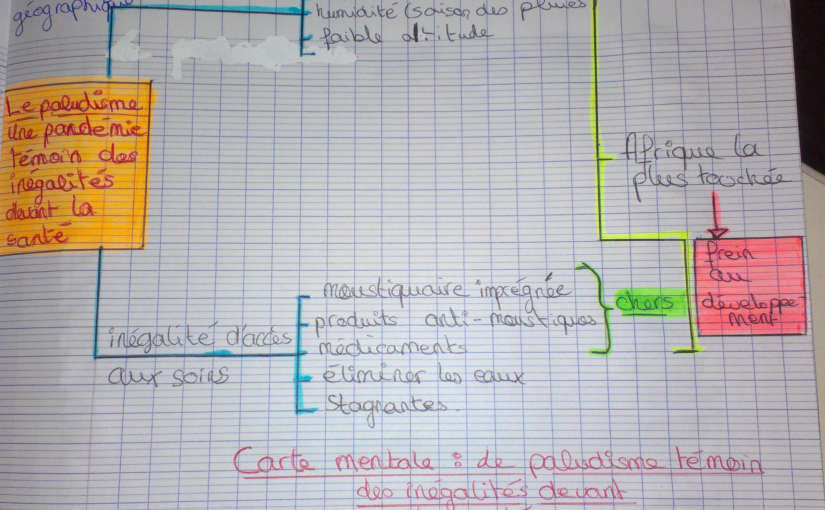 géographique
humidité (saison des pluies
faible altitude
Le paludisme
Une pandémie
témoin des
inégalités
devant la
santé
Afrique la
plus touchée
frein
au
développe-
ment
moustiquaire imprégnée
produits anti-moustiques
médicaments
éliminer les eaux
stagnantes.
chers
inégalité d'accès
aux soins
Carte mentale : de paludisme témoin
des inégalités devant